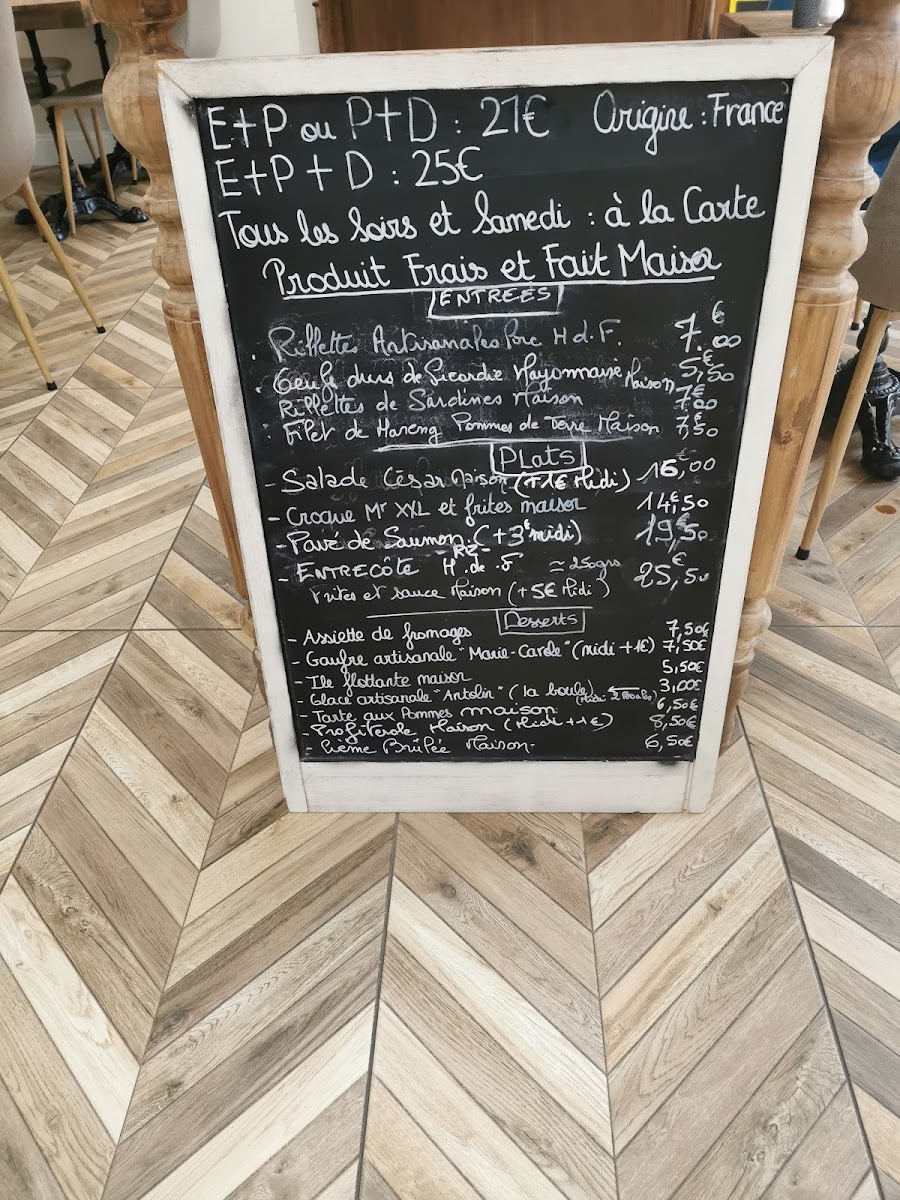 E+P ou P+D : 21€ Origine : France
E+P+D : 25€
Tous les Soirs et Samedi : à la Carte
Produit Frais et Fait Maison
ENTREES
Rillettes Artisanales Porc H.d.F. 7.€00
Oeufs durs de Picardie Mayonnaise Maison 5,€50
Rillettes de Sardines Maison 7€00
Filet de Hareng Pommes de Terre Maison 7,€50
Plats
- Salade César Maison (+1€ Midi) 16,00
- Croque Mr XXL et frites maison 14€,50
- Pavé de Saumon (+3€ midi) 19,€50
- RZ -
- ENTRECÔTE H.de.F ≈250grs 25,€50
Frites et sauce Maison (+5€ Midi)
Desserts
- Assiette de fromages 7,50€
- Gaufre artisanale "Marie-Carole" (midi +1€) 7,50€
- Ile flottante maison 5,50€
- Glace artisanale "Antolin" (la boule) (Midi 2 boules) 3,00€
- Tarte aux Pommes maison 6,50€
- Profiterole Maison (Midi +1€) 8,50€
- Crème Brûlée Maison - 6,50€